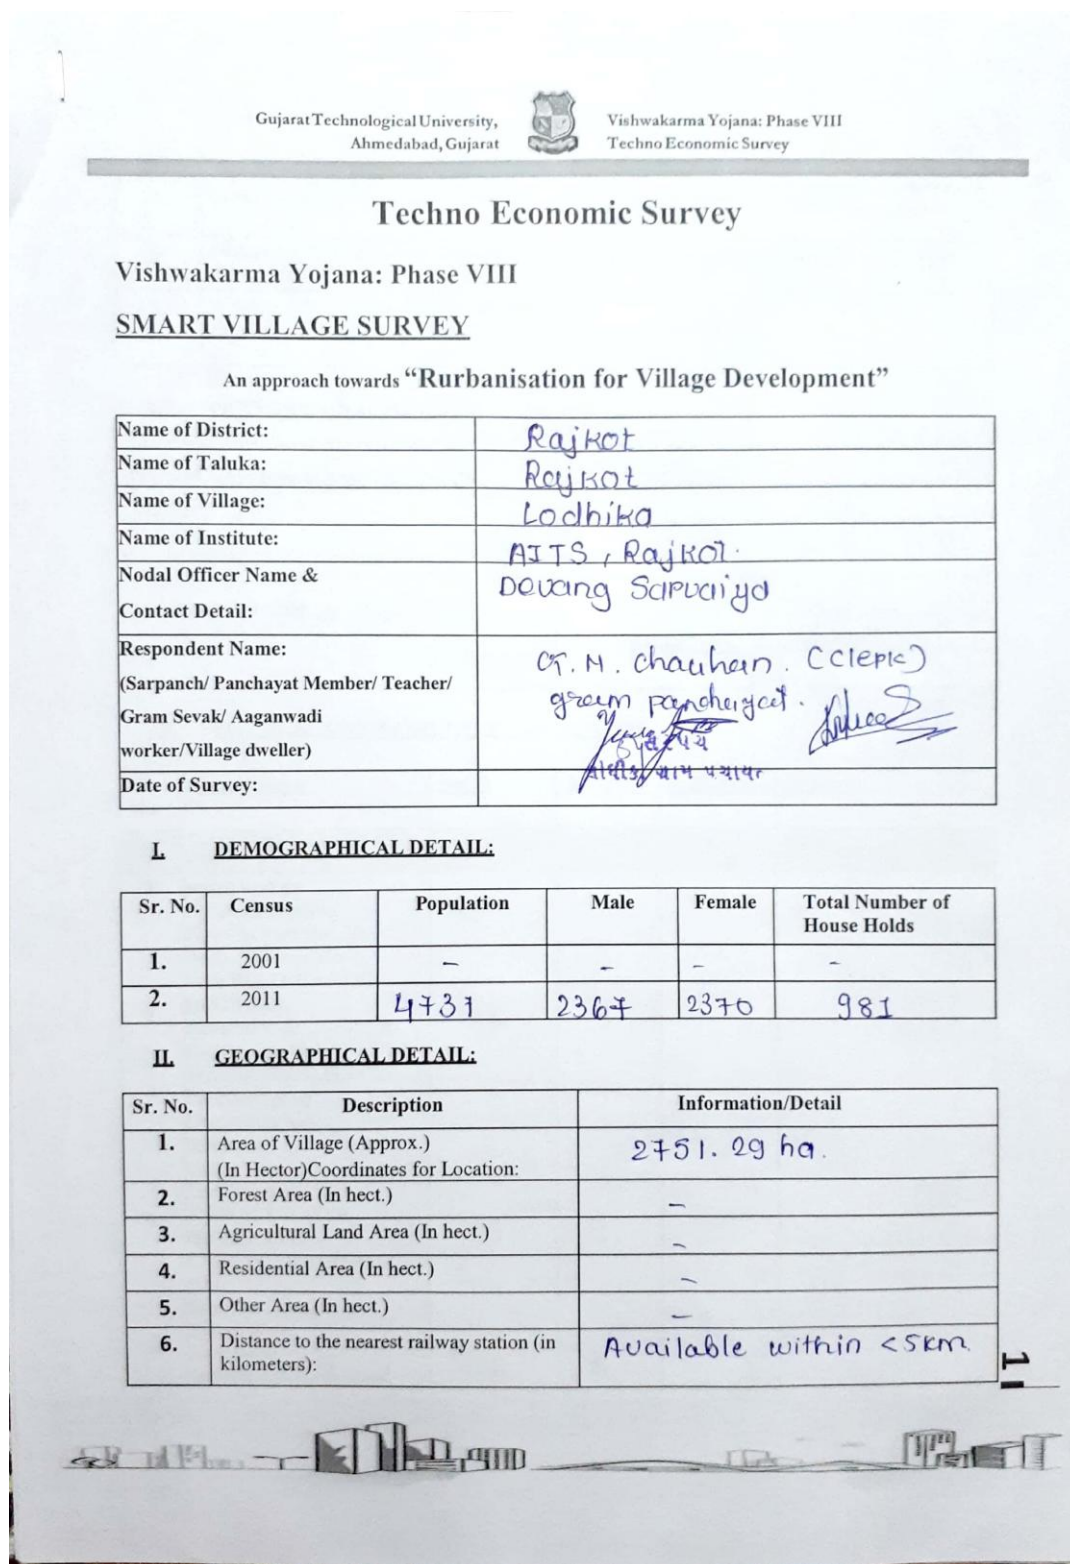 Gujarat Technological University, Vishwakarma Yojana: Phase VIII
Ahmedabad, Gujarat Techno Economic Survey
Techno Economic Survey
Vishwakarma Yojana: Phase VIII
SMART VILLAGE SURVEY
An approach towards “Rurbanisation for Village Development”
Name of District: Rajkot
Name of Taluka: Rajkot
Name of Village: Lodhika
Name of Institute: AITS, Rajkot.
Nodal Officer Name & Devang Sarvaiya
Contact Detail:
Respondent Name: G. M. Chauhan. (Clerk)
(Sarpanch/ Panchayat Member/ Teacher/
Gram Sevak/ Aaganwadi gram panchayat.
worker/Village dweller) સરપંચ
ગ્રામ પંચાયત
Date of Survey:
I. DEMOGRAPHICAL DETAIL:
Sr. No. Census Population Male Female Total Number of
House Holds
1. 2001 - - - -
2. 2011 4737 2367 2370 981
II. GEOGRAPHICAL DETAIL:
Sr. No. Description Information/Detail
1. Area of Village (Approx.) 2751.29 ha.
(In Hector)Coordinates for Location:
2. Forest Area (In hect.) -
3. Agricultural Land Area (In hect.) -
4. Residential Area (In hect.) -
5. Other Area (In hect.) -
6. Distance to the nearest railway station (in Available within <5km.
kilometers):
1